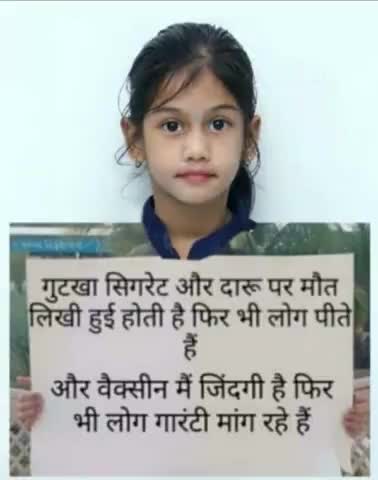 गुटखा सिगरेट और दारू पर मौत
लिखी हुई होती है फिर भी लोग पीते
हैं
और वैक्सीन मैं जिंदगी है फिर
भी लोग गारंटी मांग रहे हैं